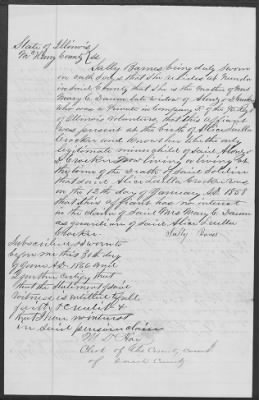 State of Illinois
McHenry County } ss
Sally Barnes being duly sworn
on oath says that she resides at Nunda
in said County that she is the mother of Mrs
Mary C. late widow of Alonzo D. Crocker
who was a Private in Company of the Regt
of Illinois Volunteers, that this affiant
was present at the birth of Alice
Crocker and knows her to be the only
legitimate minor child of said Alonzo
D. Crocker now living or living at
the time of the death of said soldier
that said Alice Crocker was
on the 12th day of January AD. 185
that this affiant has no interest
in the claim of said Mrs Mary C.
as guardian of said Alice
Crocker.
Sally Barnes
Subscribed & sworn to
before me this 30th day
of June A.D. 1866 and
I further certify that
that the statement of said
witness is entitled to full
faith & credit &
that I have no interest
in said pension claim
Clerk of the County Court
of said County